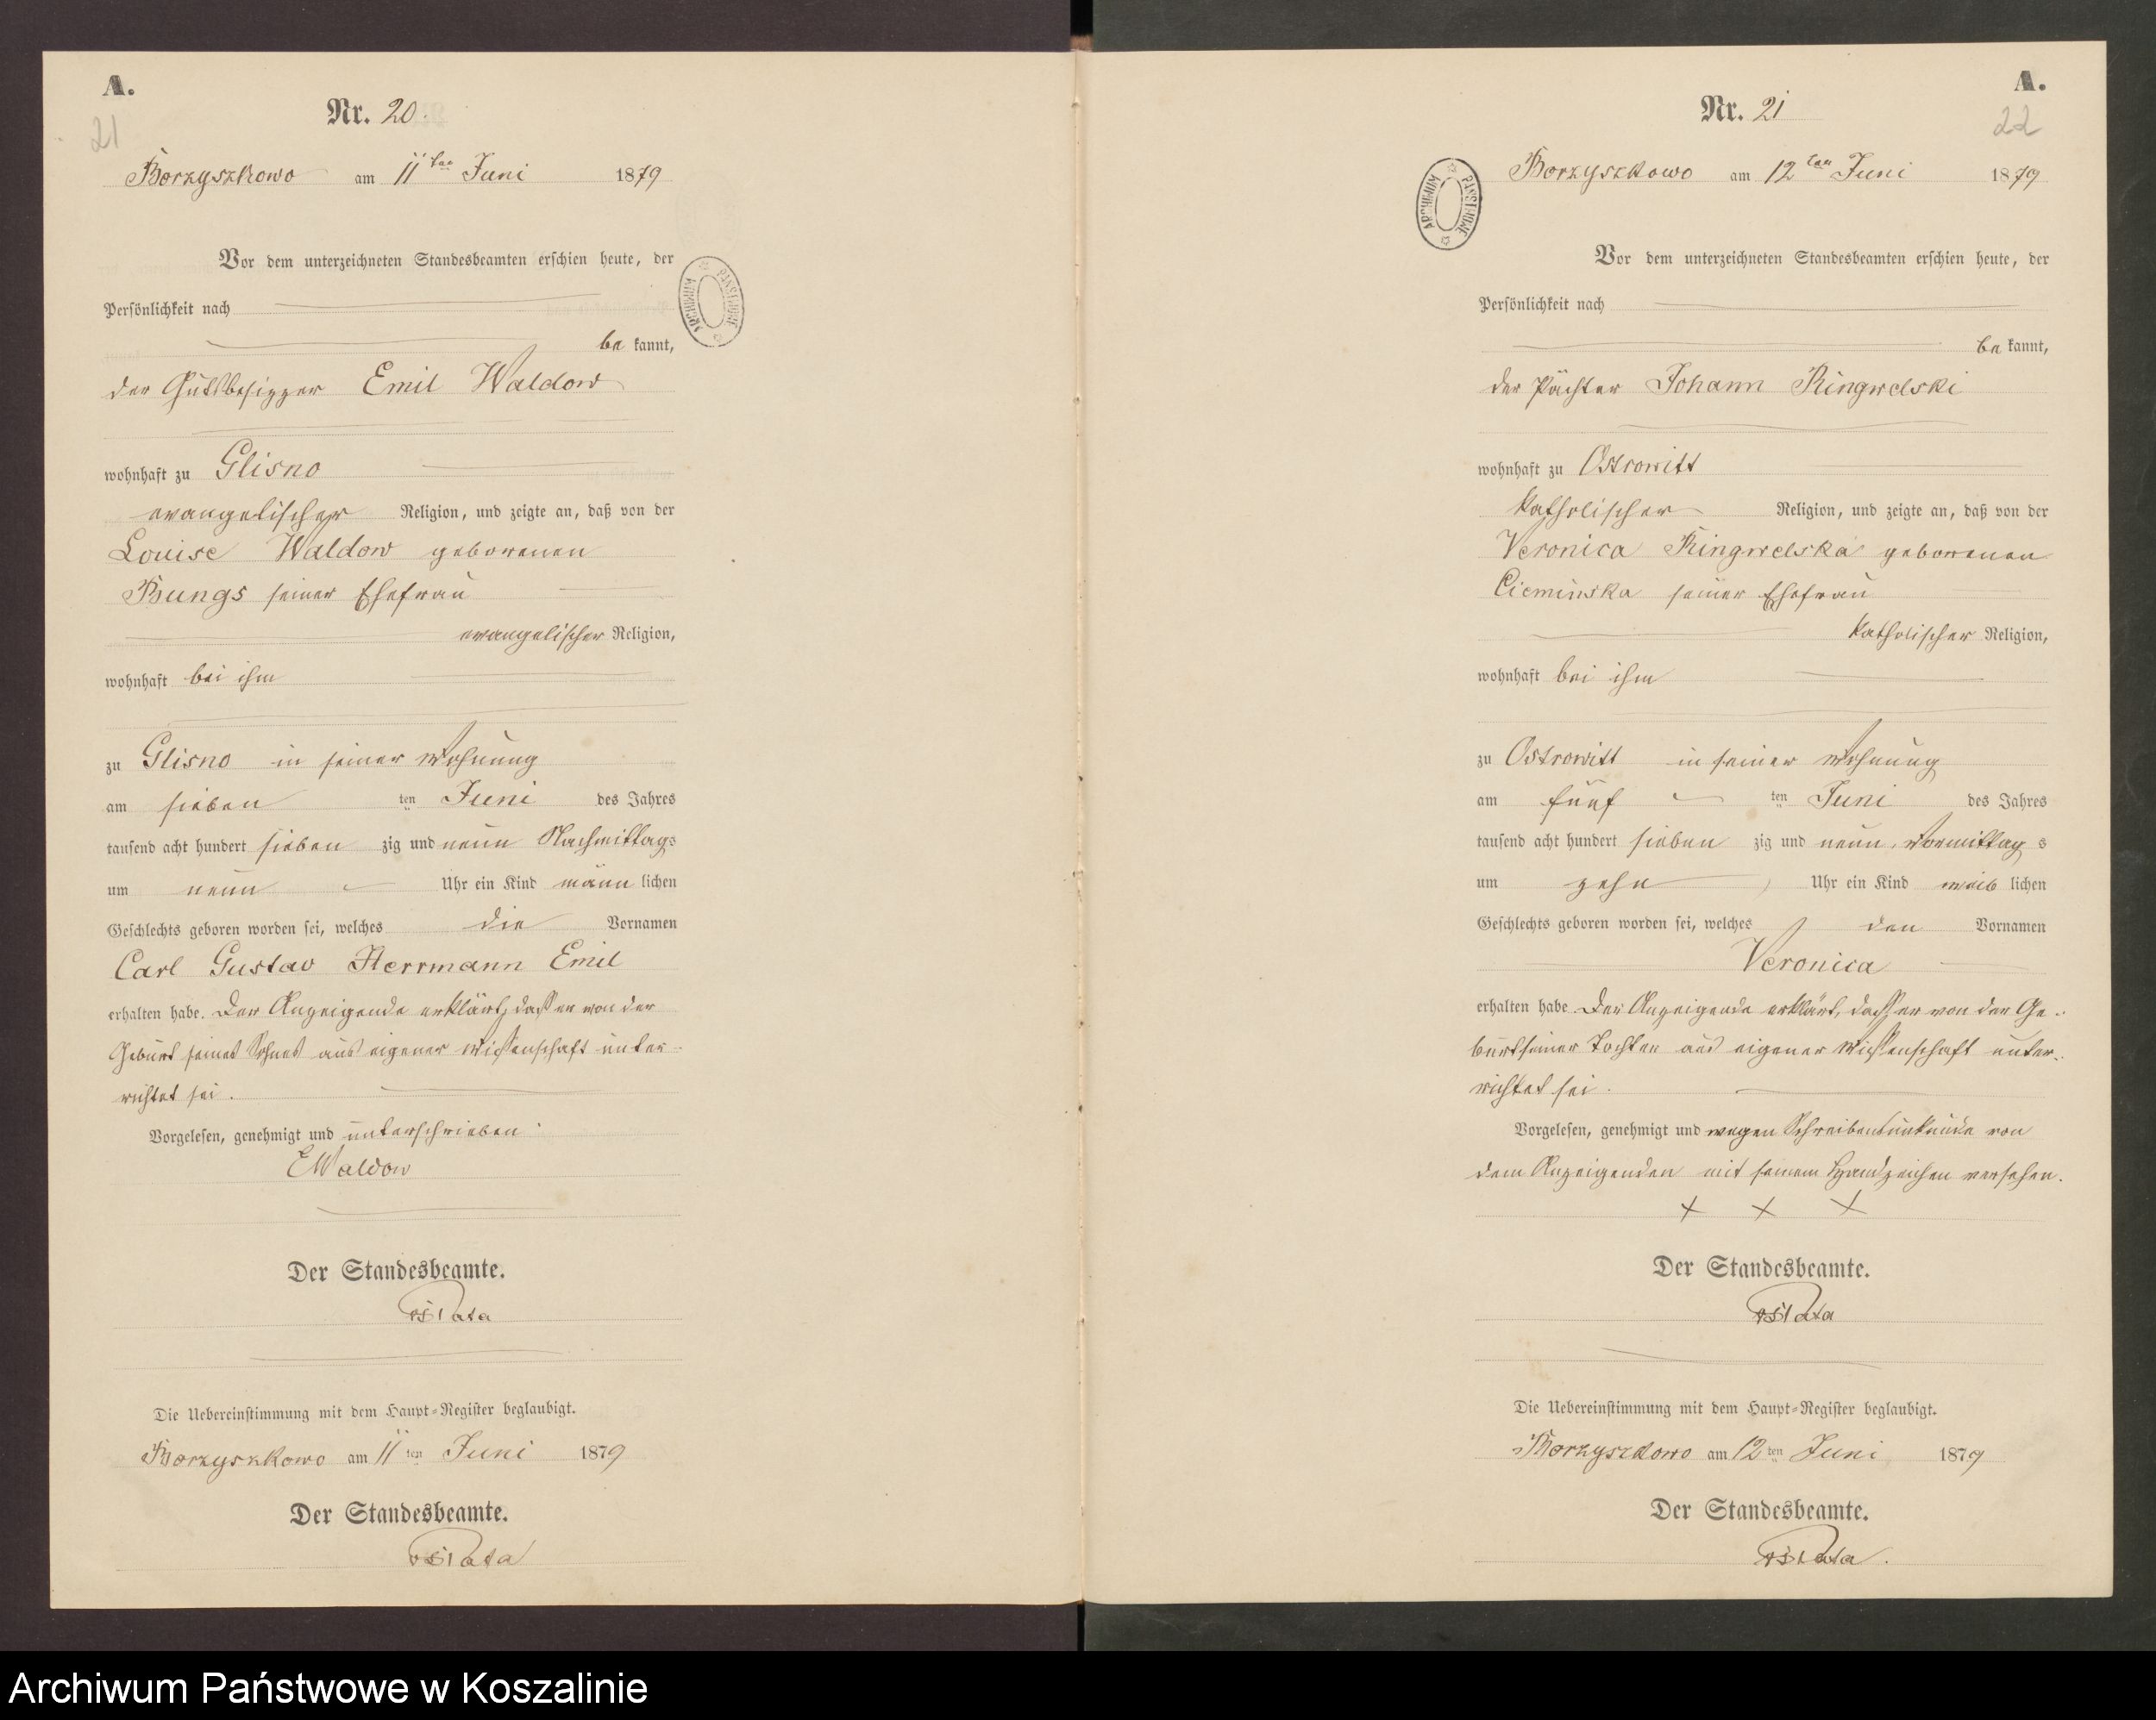 A.
21
Nr. 20.
Borzyszkowo am 11ten Juni 1879
Vor dem unterzeichneten Standesbeamten erschien heute, der
Persönlichkeit nach
be kannt,
der Gutsbesitzer Emil Waldow
wohnhaft zu Glisno
evangelischer Religion, und zeigte an, daß von der
Louise Waldow geborenen
Bungs seiner Ehefrau
evangelischer Religion,
wohnhaft bei ihm
zu Glisno in seiner Wohnung
am sieben ten Juni des Jahres
tausend acht hundert sieben zig und neun Nachmittags
um neun Uhr ein Kind männ lichen
Geschlechts geboren worden sei, welches die Vornamen
Carl Gustav Herrmann Emil
erhalten habe. Der Anzeigende erklärt, dass er von der
Geburt seines Sohnes aus eigener Wissenschaft unter-
richtet sei.
Vorgelesen, genehmigt und unterschrieben
EWaldow
Der Standesbeamte.
Die Uebereinstimmung mit dem Haupt-Register beglaubigt.
Borzyszkowo am 11 ten Juni 1879
Der Standesbeamte.
ARCHIWUM PAŃSTWOWE
A.
22
Nr. 21
Borzyszkowo am 12ten Juni 1879
ARCHIWUM PAŃSTWOWE
Vor dem unterzeichneten Standesbeamten erschien heute, der
Persönlichkeit nach
be kannt,
der Pächter Johann Ringwelski
wohnhaft zu Ostrowitt
katholischer Religion, und zeigte an, daß von der
Veronica Ringwelska geborenen
Cieminska seiner Ehefrau
katholischer Religion,
wohnhaft bei ihm
zu Ostrowitt in seiner Wohnung
am fünf ten Juni des Jahres
tausend acht hundert sieben zig und neun, Vormittag s
um zehn Uhr ein Kind weib lichen
Geschlechts geboren worden sei, welches den Vornamen
Veronica
erhalten habe. Der Anzeigende erklärt, dass er von der Ge-
burt seiner Tochter aus eigener Wissenschaft unter-
richtet sei.
Vorgelesen, genehmigt und wegen Schreibensunkunde von
dem Anzeigenden mit seinem Handzeichen versehen.
X X X
Der Standesbeamte.
Die Uebereinstimmung mit dem Haupt-Register beglaubigt.
Borzyszkowo am 12 ten Juni 1879
Der Standesbeamte.
Archiwum Państwowe w Koszalinie